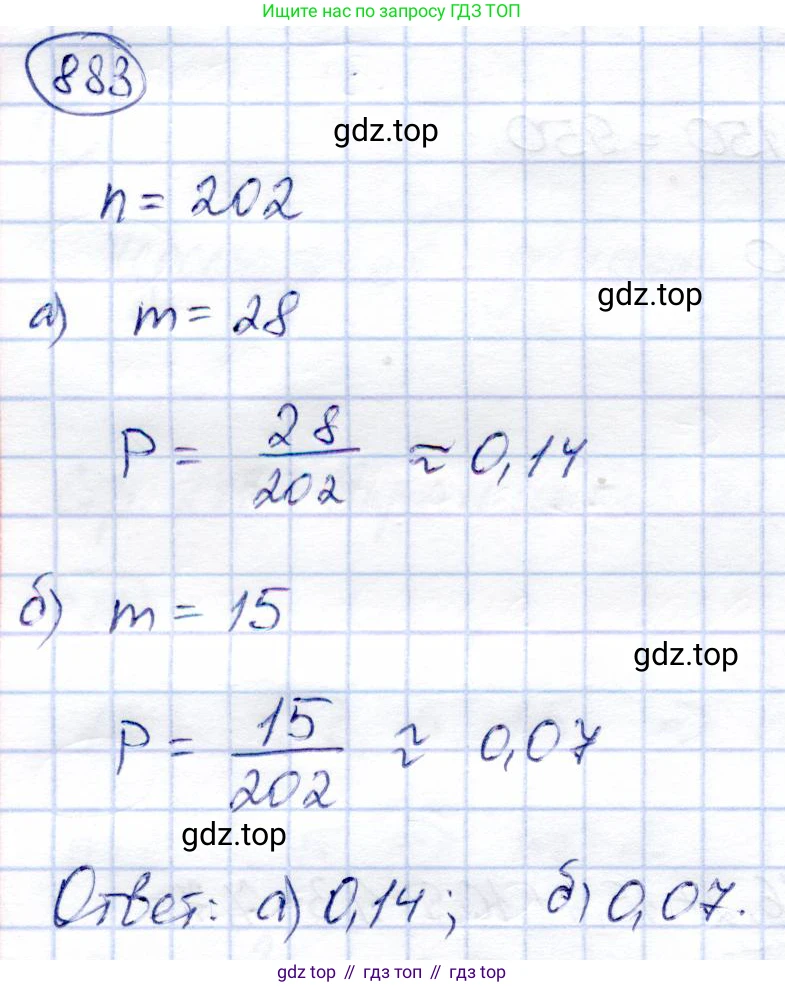 Ищите нас по запросу ГДЗ ТОП
883
gdz.top
n = 202
gdz.top
а) m = 28
P = 28/202 ≈ 0,14
б) m = 15
gdz.top
P = 15/202 ≈ 0,07
gdz.top
Ответ: а) 0,14; б) 0,07.
gdz top // гдз топ // gdz top